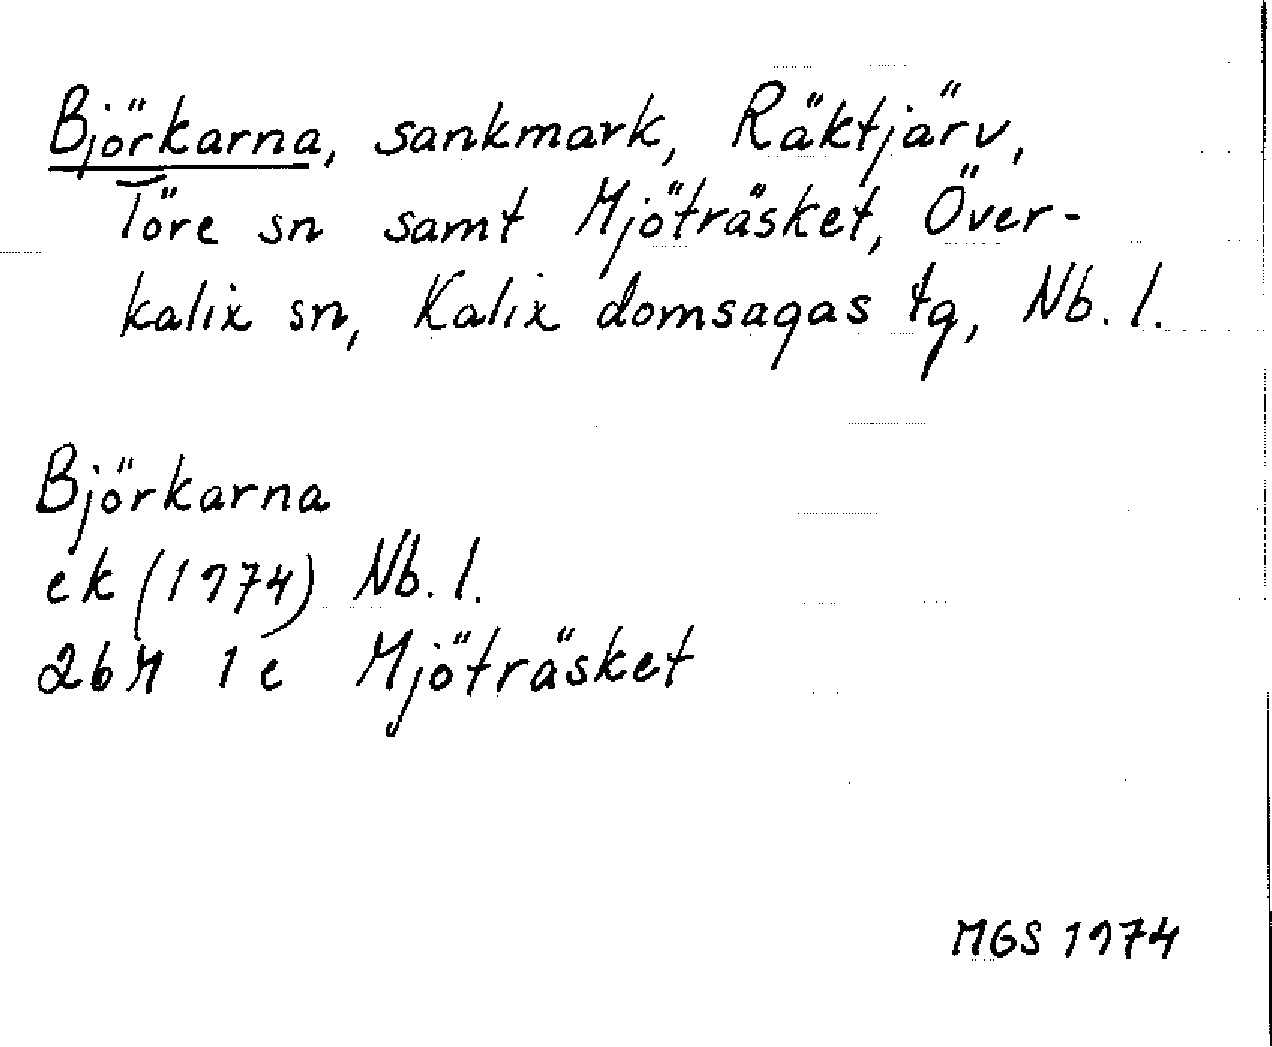 Björkarna, sankmark, Räktjärv,
Töre sn samt Mjöträsket, Över-
kalix sn, Kalix domsagas tg, Nb. l.
Björkarna
ek (1974) Nb. l.
26M 1e Mjöträsket
MGS 1974